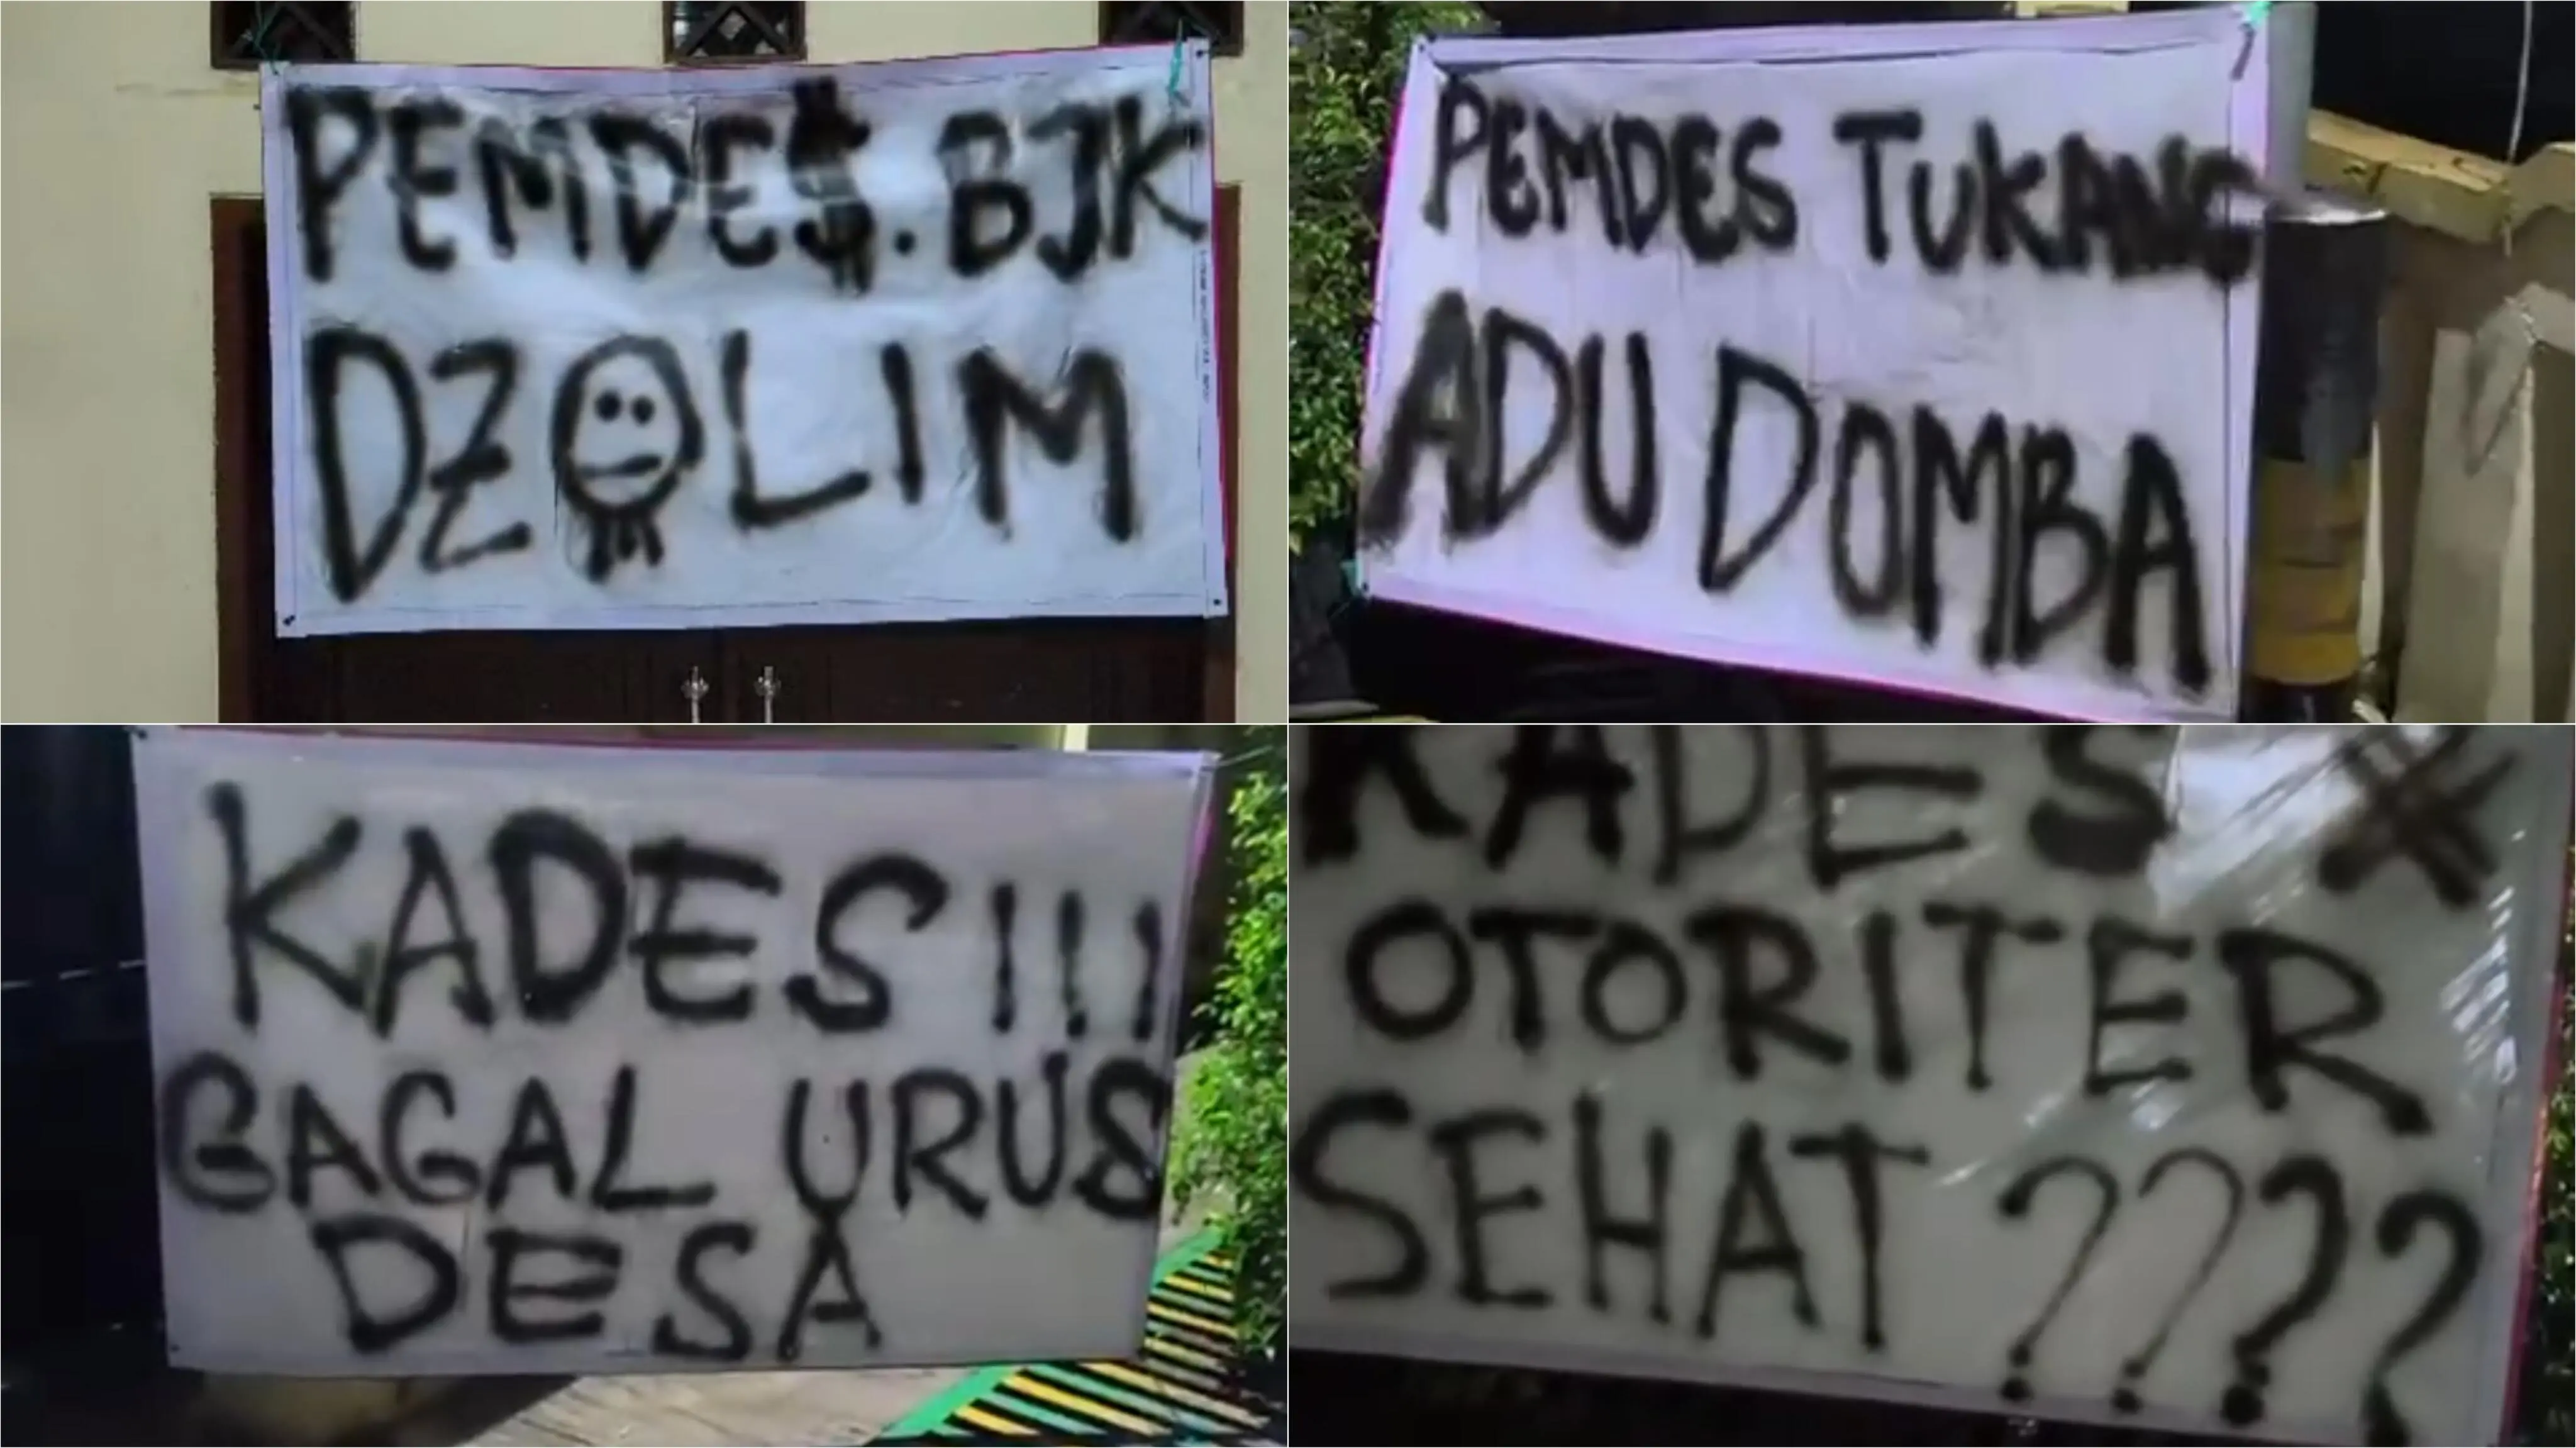 PEMDE$.BJK
DZOLIM
PEMDES TUKANG
ADU DOMBA
KADES!!!
GAGAL URUS
DESA
KADES
OTORITER
SEHAT ????